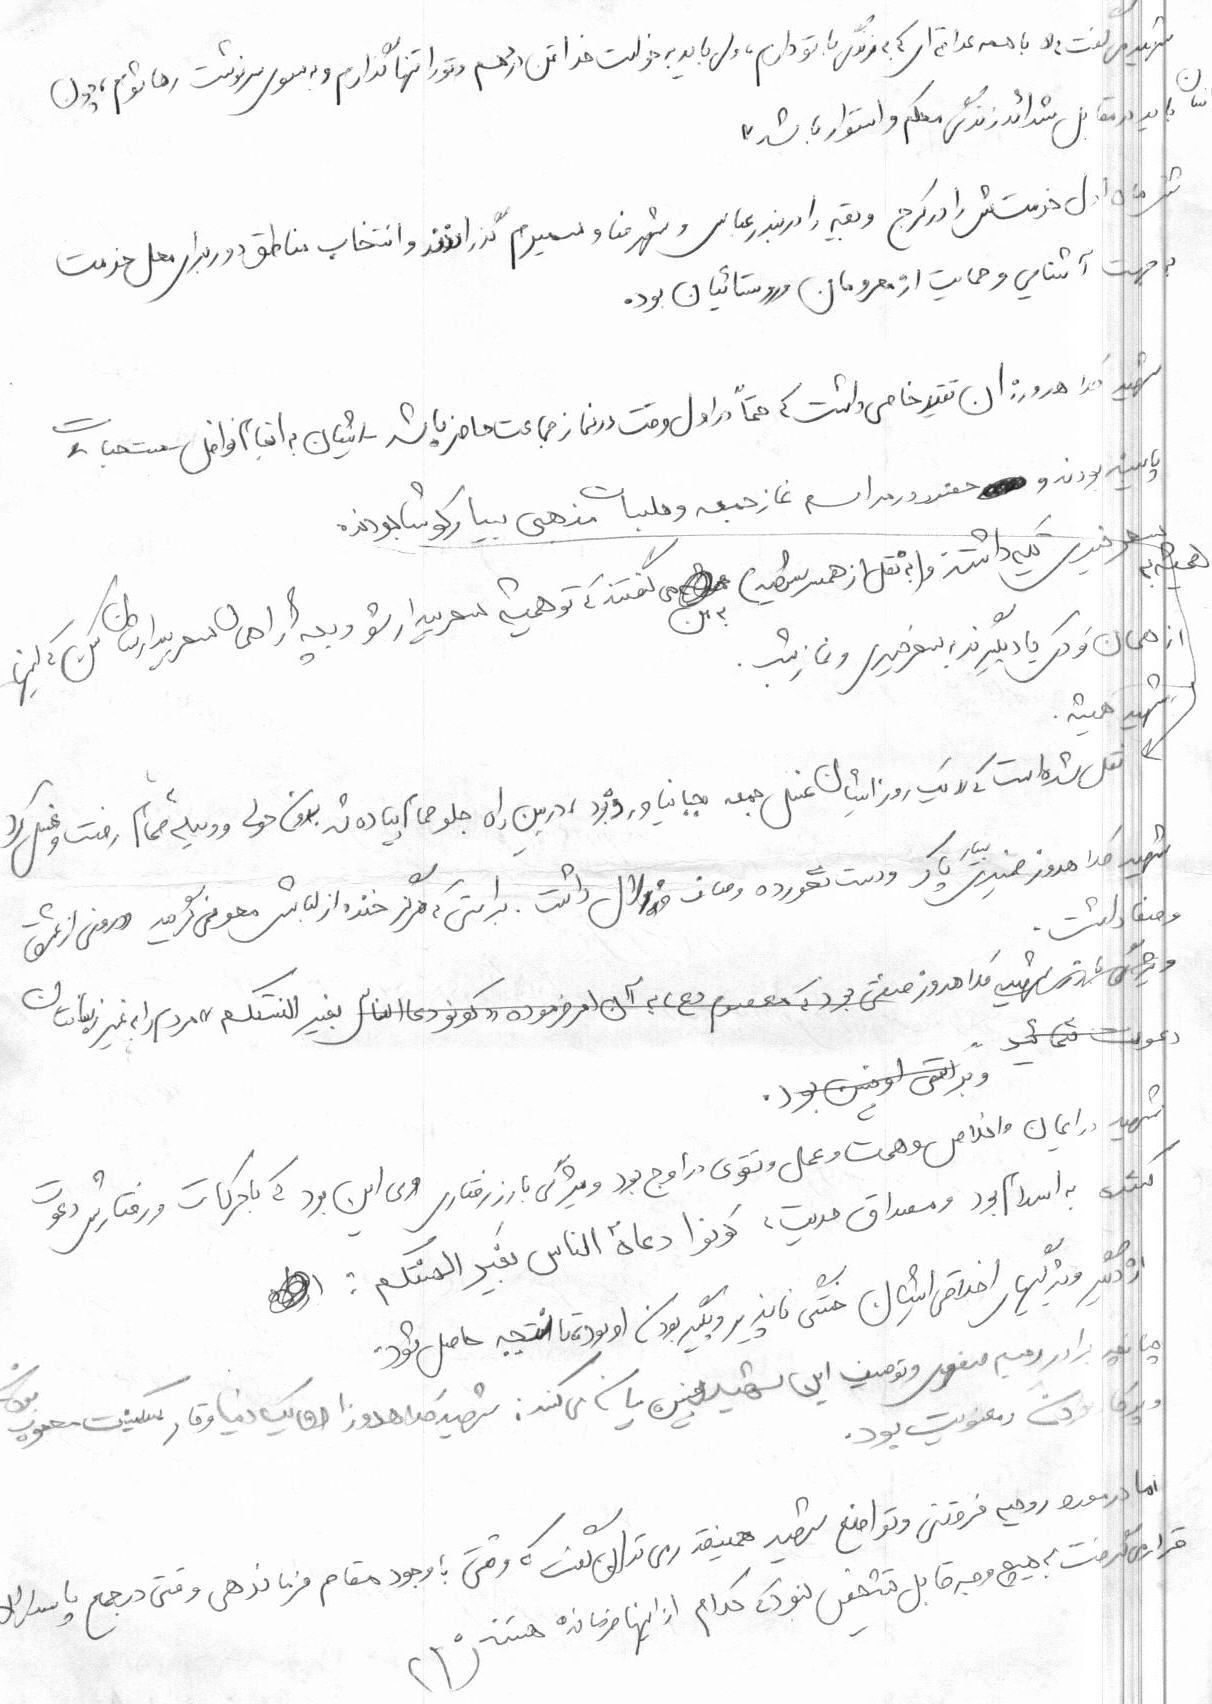 شهید می گفت «با همه علاقه ای که به زندگی با تو دارم، ولی باید به خواست خدا تن دردهم و تو را تنها گذارم و به سوی سرنوشت رها شوم، چون
انسان باید در مقابل شدائد زندگی محکم و استوار باشد»
شش ماه اول خدمتش را در کرج و بقیه را در بندرعباس و شهرضا و سمیرم گذراندند و انتخاب مناطق دور برای محل خدمت
به جهت آشنایی و حمایت از محرومان و روستائیان بود.
شهید خداهدروز ان تقید خاصی داشت که حتماً در اول وقت در نماز جماعت حاضر باشد ایشان به انجام نوافل
پایبند بودند و در مراسم نماز جمعه و جلسات مذهبی بسیار کوشا بودند.
همیشه به سحرخیزی تکیه داشتند و (به نقل از همسر شهید) به من می گفتند که تو همیشه سحر بیدار شو و بچه ها را هم سحر بیدارشان کن که اینها
از همان کودکی یاد بگیرند به سحرخیزی و نماز شب.
شهید همیشه.
نقل شده است که «یک روز ایشان غسل جمعه بجا نیاورده بود، در بین راه جلو حمام پیاده شد بدون حوله و وسیله حمام رفت و غسل کرد
شهید خداهدروز ضمیری بسیار پاک و دست نخورده و صاف و زلال داشت. براستی که هرگز خنده از لبانش محو نمی گردید درونی از عشق
و صفا داشت.
ویژگی شهید خداهدروز صفتی بود که معصوم (ع) به آن امر فرموده «کونو دعا الناس بغیر السنتکم» مردم را به غیر زبانتان
دعوت نمائید و براستی او چنین بود.
شهید در ایمان و اخلاص و همت و عمل و تقوی در اوج بود ویژگی بارز رفتاری وی این بود که با حرکات و رفتارش دعوت
کننده به اسلام بود و مصداق حدیث، کونوا دعاة الناس بغیر السنتکم:
از دیگر ویژگیهای اخلاقی ایشان خستگی ناپذیر و پیگیر بودن او بود تا نتیجه حاصل شود.
چنانچه برادر رحیم صفوی و توصیف این شهید چنین بیان می کند: شهید خداهدروز یک دنیا وقار سکینت محجوب بودن
و پرکار بودن و معنویت بود.
اما در مورد روحیه فروتنی و تواضع شهید همینقدر می توان گفت که وقتی با وجود مقام فرماندهی وقتی در جمع پاسداران
قرار می گرفت به هیچ وجه قابل تشخیص نبود که کدام از اینها فرمانده هستند